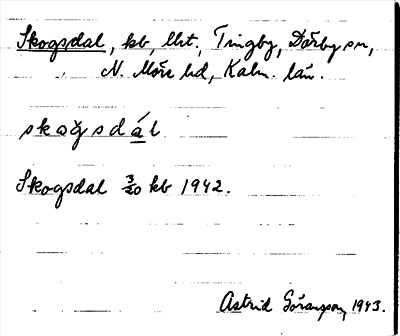 Skogsdal, kb, lht., Tingby, Dörby sn,
N. Möre hd, Kalm. län.
skogsdál
Skogsdal 3/20 kb 1942.
Astrid Göransson, 1943.